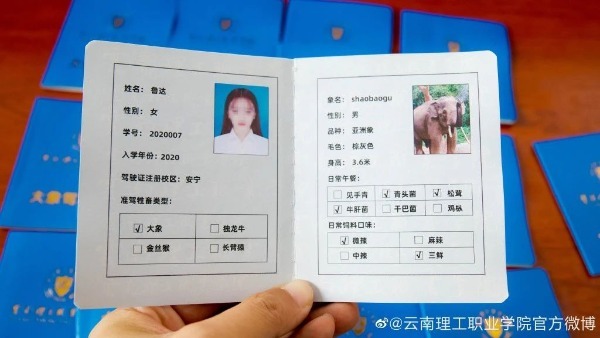 姓名： 鲁达
性别： 女
学号： 2020007
入学年份：2020
驾驶证注册校区：安宁
准驾牲畜类型：
√ 大象 独龙牛
金丝猴 长臂猿
象名： shaobaogu
性别： 男
品种： 亚洲象
毛色： 棕灰色
身高： 3.6米
日常午餐：
见手青 √ 青头菌 √ 松茸
√ 牛肝菌 干巴菌 鸡枞
日常饲料口味：
√ 微辣 麻辣
中辣 √ 三鲜
大象驾
@云南理工职业学院官方微博